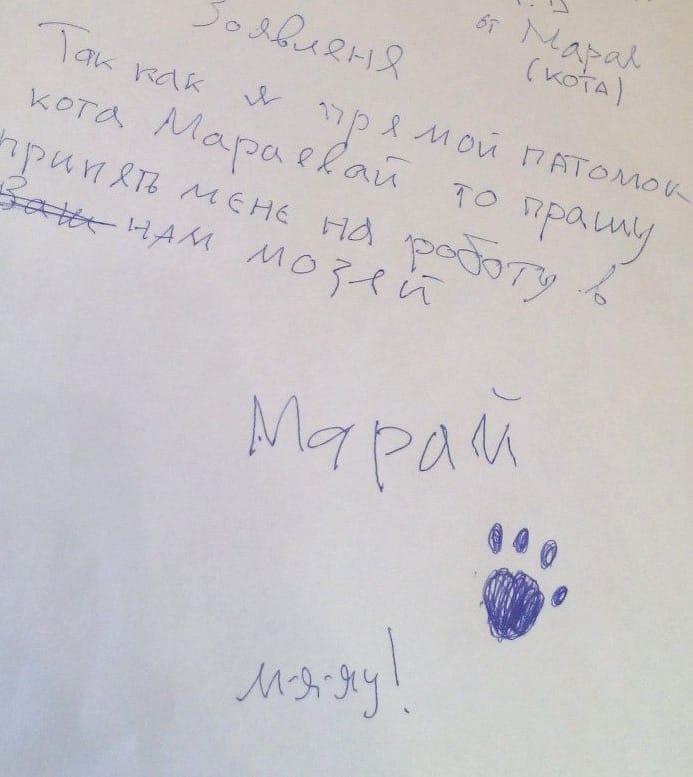 от Марая
Зоявленя
(кота)
Так как я прямой патомок
кота Мараевай то прашу
принять мєнє на роботу в
Ваш нам мозей
Марай
м-я-яу!